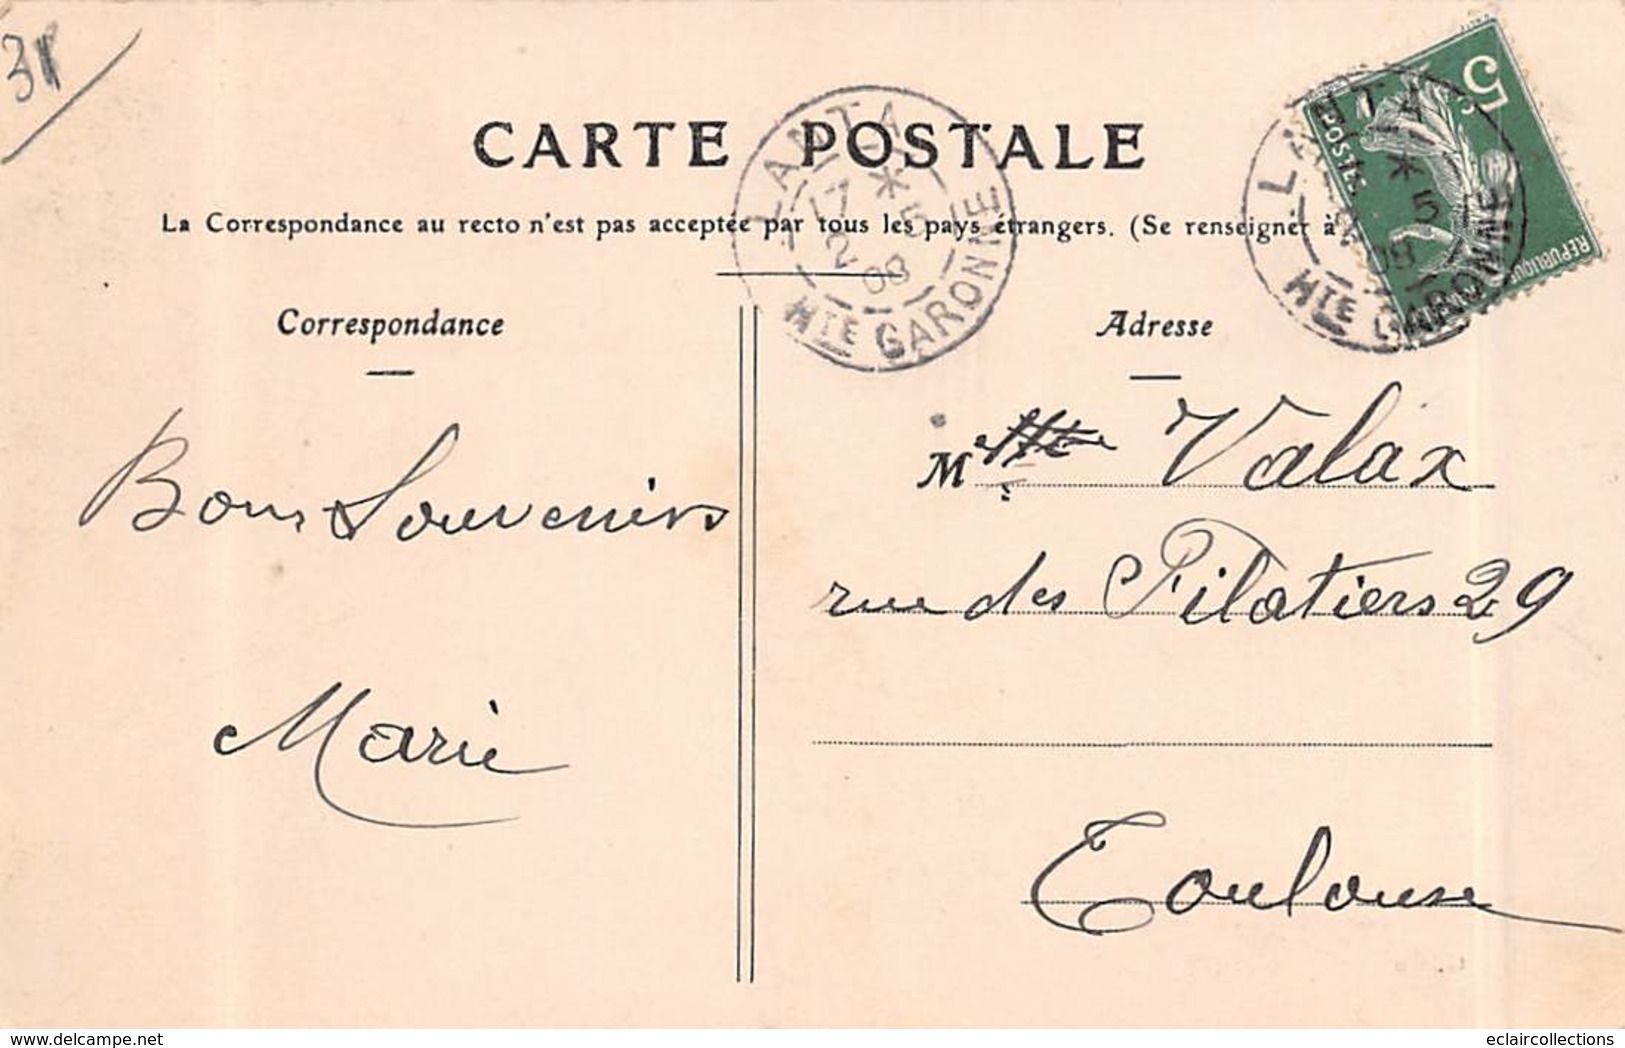 31
CARTE POSTALE
La Correspondance au recto n'est pas acceptée par tous les pays étrangers. (Se renseigner à
LANTA
17 * 5
2 08
HTE GARONNE
LANTA
* 5
08
HTE GARONNE
5c
POSTES
REPUBLIQUE
Correspondance
Adresse
M Valax
rue des Filatiers 29
Toulouse
Bons Souvenirs
Marie
eclaircollections